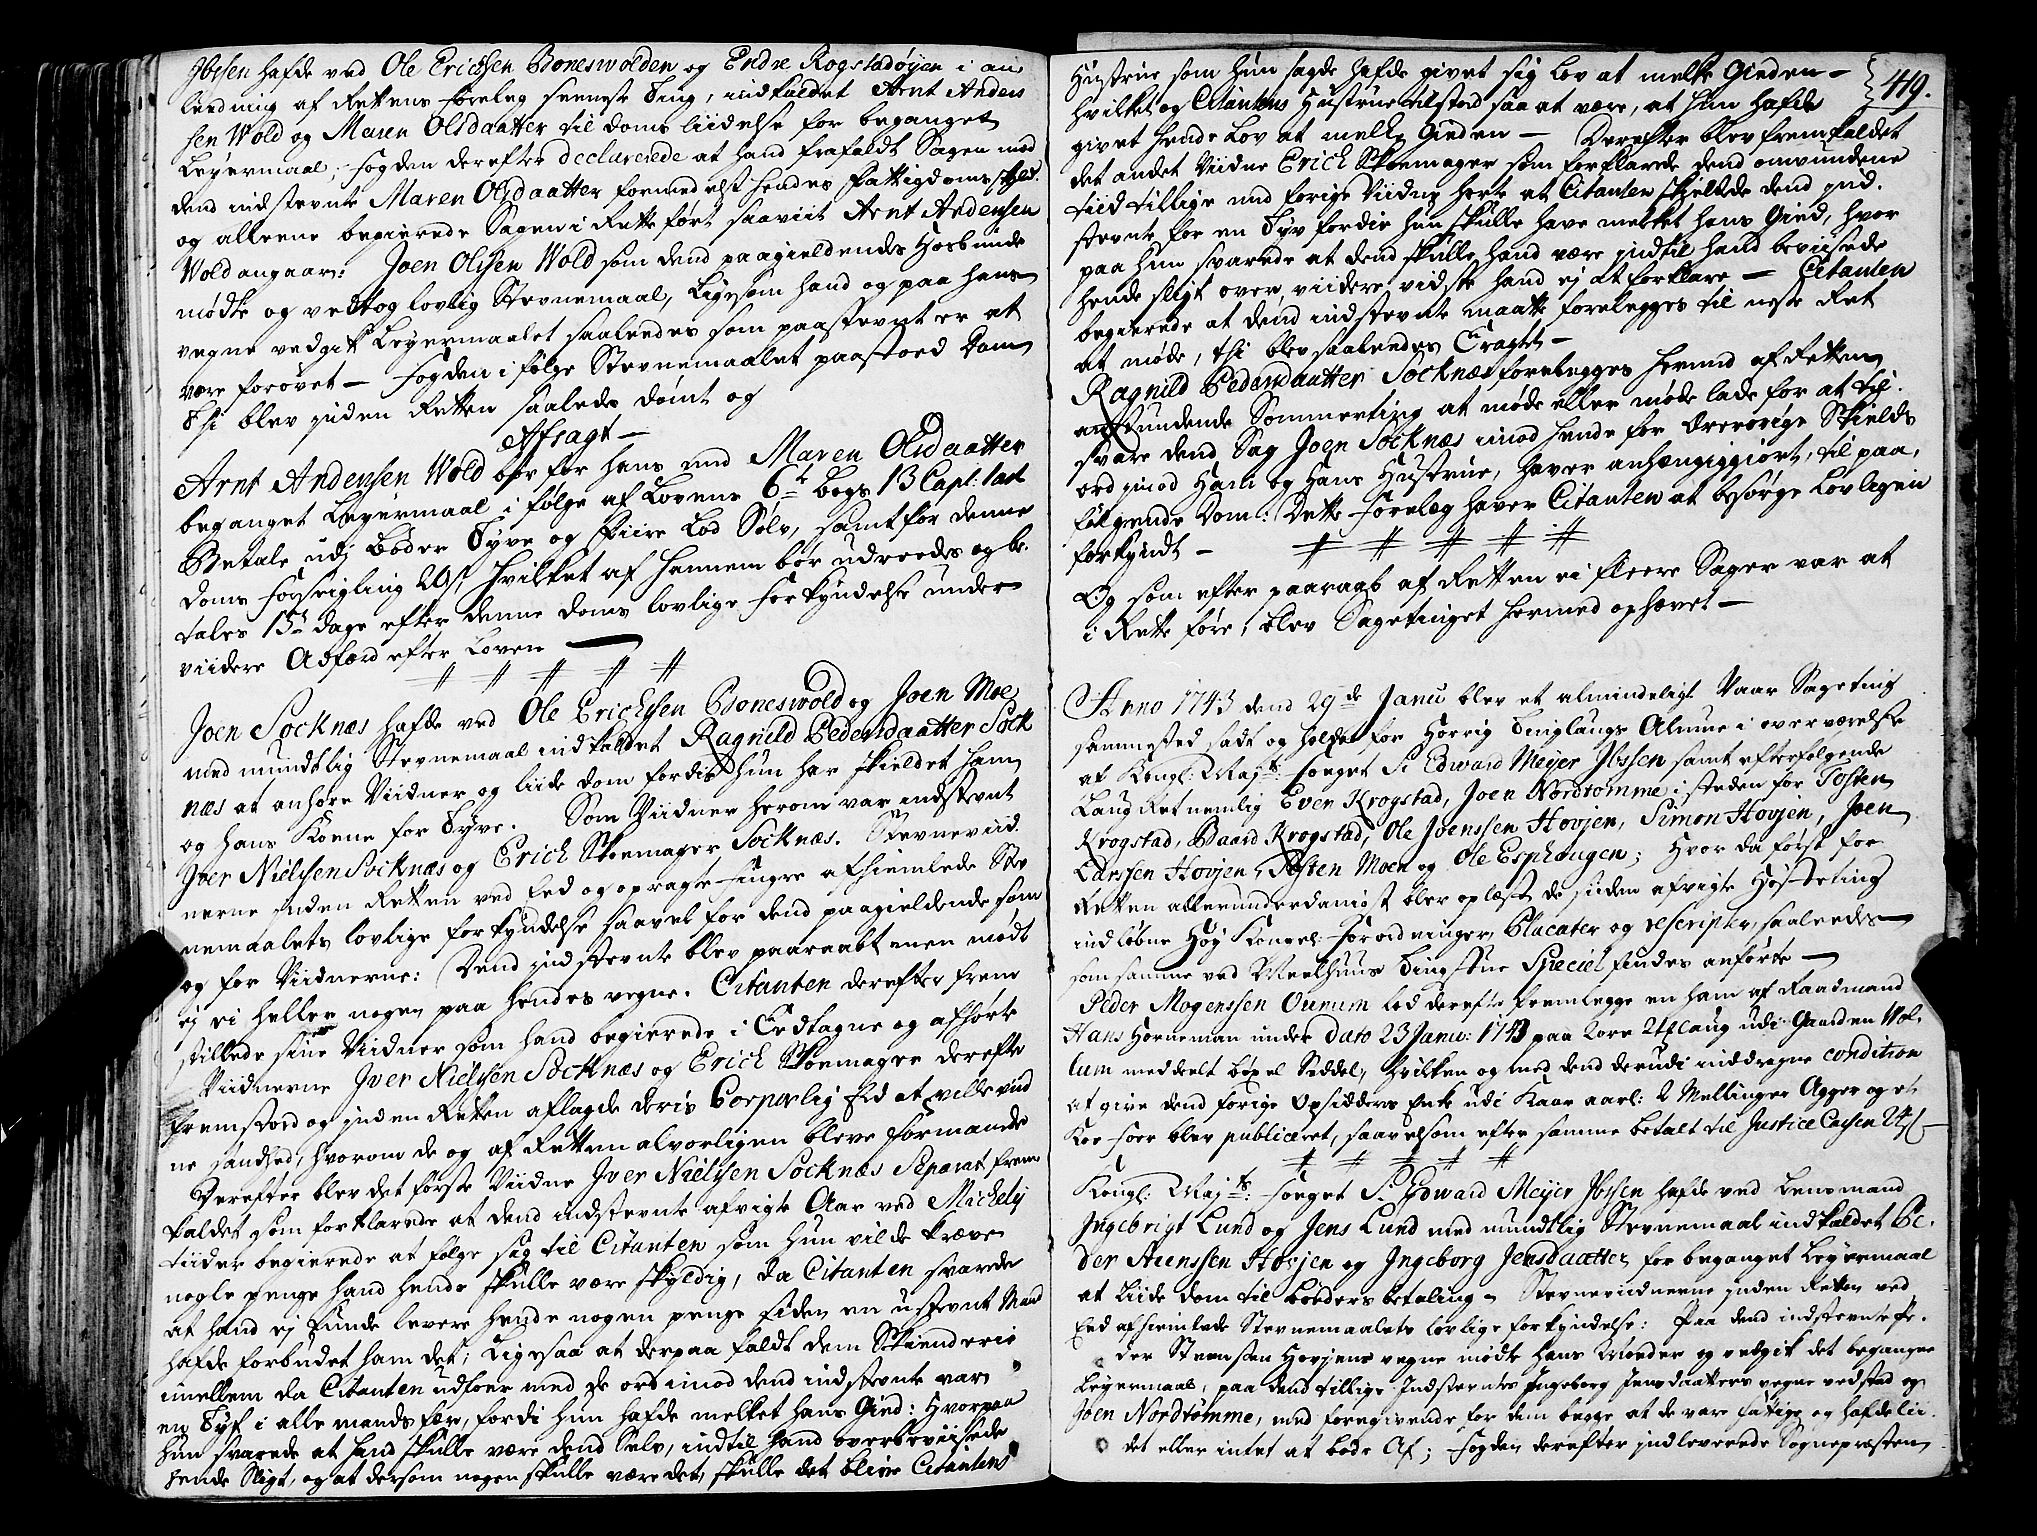 Ibsen hafde ved Ole Erichsen Boneswolden og Endre Rogstadøyen i an
leedning af Rettens forelæg seeneste Ting, indkaldet Arnt Anders
sen Wold og Maren Olsdaatter til doms liidelse for beganget
Leyermaal; fogden derefter declarerede at hand frafaldt Sagen mod
dend indstevnte Maren Olsdaatter formedelst hendes fattigdoms skyld.
og alleene begierede Sagen i Rette ført saaviit Arnt Andersen
Wold angaar: Joen Olssen Wold som dend paagieldendes Hosbunde
mødte og vedtog lovlig Stevnemaal, Ligesom hand og paa hans
vegne vedgik Leyermaalet saaleedes som paastevnt er at
være forøvet — fogden i følge Stevnemaalet paastoed Dom
Thi blev inden Retten saaledes dømt og
Afsagt —
Arnt Andersen Wold bør for hans med Maren Olsdaatter
beganget Leyermaal i følge af Lovens 6te bogs 13 Capl: 1 art
Betale udj bøder Tyve og fiire Lod Sølv, samt for denne
doms forseigling 20 s hvilket af hannem bør udreedes og be.
tales 15 dage efter denne doms lovlige forkyndelse under
viidere Adfærd efter Loven —
# # # # #
Joen Socknæs hafde ved Ole Erichsen Boneswold og Joen Moe
med mundtlig Stevnemaal indkaldet Ragnild Pedersdaatter Sock
næs at anhøre Viidner og liide dom fordi hun har skieldet ham
og hans Koene for Tyve. Som Viidner herom var indstevnt
Iver Nielsen Socknæs og Erich Skoemager Socknæs. Stevneviid.
nerne inden Retten ved Eed og opragte fingre afhiemlede Ste
vnemaalets lovlige forkyndelse saavel for dend paagieldende som
og for Viidnerne: Dend indstevnte blev paaraabt men mødt
ej ei heller nogen paa hendes vegne. Citanten derefter frem
stillede sine Viidner som hand begierede i Eedtagne og afhørte
Viidnerne Iver Nielsen Socknæs og Erich Skoemager derefter
fremstod og inden Retten aflagde deris Corporlig Eed at ville vid
ne sandhed, hvorom de og af Retten alvorligen bleve formande
Derefter blev det første Viidne Iver Nielsen Socknæs Separat frem
kaldet som forklarede at dend indstevnte afvigte Aar ved Michely
tiider begierede at følge sig til Citanten som hun vilde kræve
nogle penge hand hende skulle være skyldig, da Citanten svarede
at hand ej kunde levere hende nogen penge siden en ustevnt Mand
hafde forbudet ham det; Ligesaa at derpaa faldt dem Skienderie
imellem da Citanten udfoer med de ord imod dend indstevnte var
en Tyf i alle mands fær, fordi hun hafde melket hans Gied: Hvorpaa
hun svarede at hand skulle være dend Selv, indtil hand overbeviisede
hende Sligt, og at dersom nogen skulle være det, skulle det blive Citantens
419.
Hustrue som hun sagde hafde givet sig lov at melke Gieden —
hvilket og Citantens Hustrue tilstod saa at være, at hun hafde
givet hende Lov at melke Gieden — Derefter blev fremkaldet
det andet Viidne Erich Skoemager som forklarede dend omvundene
tiid tillige med forige Viidne hørte at Citanten skieltede dend ind.
stevnte for en Tyv fordie hun skulle have melket hans Gied, hvor
paa hun svarede at dend skulle hand være indtil hand beviisede
hende sligt over, viidere vidste hand ej at forklare — Citanten
begierede at dend indstevnte maatte forelegges til neste Ret
at møde, thi blev saaleedes Eragtet —
Ragnild Pedersdaatter Socknæs forelegges hermed af Retten
anstundende Sommerting at møde eller møde lade for at til.
svare dend Sag Joen Socknæs imod hende for Ærerørige Skields
ord imod Ham og Hans Hustrue, haver anhængiggiort, til paa,
følgende Dom: Dette forelæg haver Citanten at besørge Lovlegen
forkyndt —
# # # # #
Og som efter paaraab af Retten ei fleere Sager var at
i Rette føre, blev Sagetinget hermed ophævet —
Anno 1743 dend 29de Janu blev et almindeligt Vaar Sageting
sammested sadt og holdet for Horrig Tinglaugs Almue i overværelse
af Kongl: Mayts: foeget Sr Edward Meyer Ibssen samt efterfølgende
Laug Ret nemlig Even Krogstad, Joen Nordtømme i steden for Tosten
Krogstad, Baard Krogstad, Ole Joenssen Hovjen, Simon Hovjen, Joen
Larssen Hovjen, Tosten Moen og Ole Esphougen; Hvor da først for
Retten allerunderdanigst blev oplæst de siiden afvigte Høsteting
indløbne Høy Kongel: Forordninger, Placater og rescripter, saaleedes
som samme ved Meelhuus Tingstue Speciel findes anførte —
Peder Mogenssen Ouinum lod derefter fremlegge en ham af Raadmand
Hans Horneman under dato 23 Janu: 1743 paa 2 øre 2 laug udi Gaarden Wol.
lum meddeelt bøxel Seddel, hvilken og med dend derudi inddragne condition
at give dend forige Opsidders Enke udi Kaar aarl: 2 Mellinger Agger og et
Koe foer blev publiceret, saavelsom efter samme betalt til Justice Casen
# # # # #
Kongl: Mayts: foeget Sr. Edward Meyer Ibssen hafde ved Lensmand
Ingebrigt Lund og Jens Lund med mundtlig Stevnemaal indkaldet Pe.
der Steenssen Hovjen og Ingeborg Jensdaatter for beganget Leyermaal
at Liide dom til bøders betaling. Stevneviidnerne inden Retten ved
Eed afhiemlede Stevnemaalets lovlige forkyndelse: Paa dend indstevnte Pe.
der Steensen Hovjens vegne mødte hans Moeder og vedgik det begangne
Leyermaal, paa dend tillige Indstevntes Ingeborg Jensdaatters vegne vedstod og
Joen Nordtømme, med foregivende for dem begge at de vare fattige og hafde lii.
det eller intet at bøde Af; fogden derefter indleverede Sognepræsten